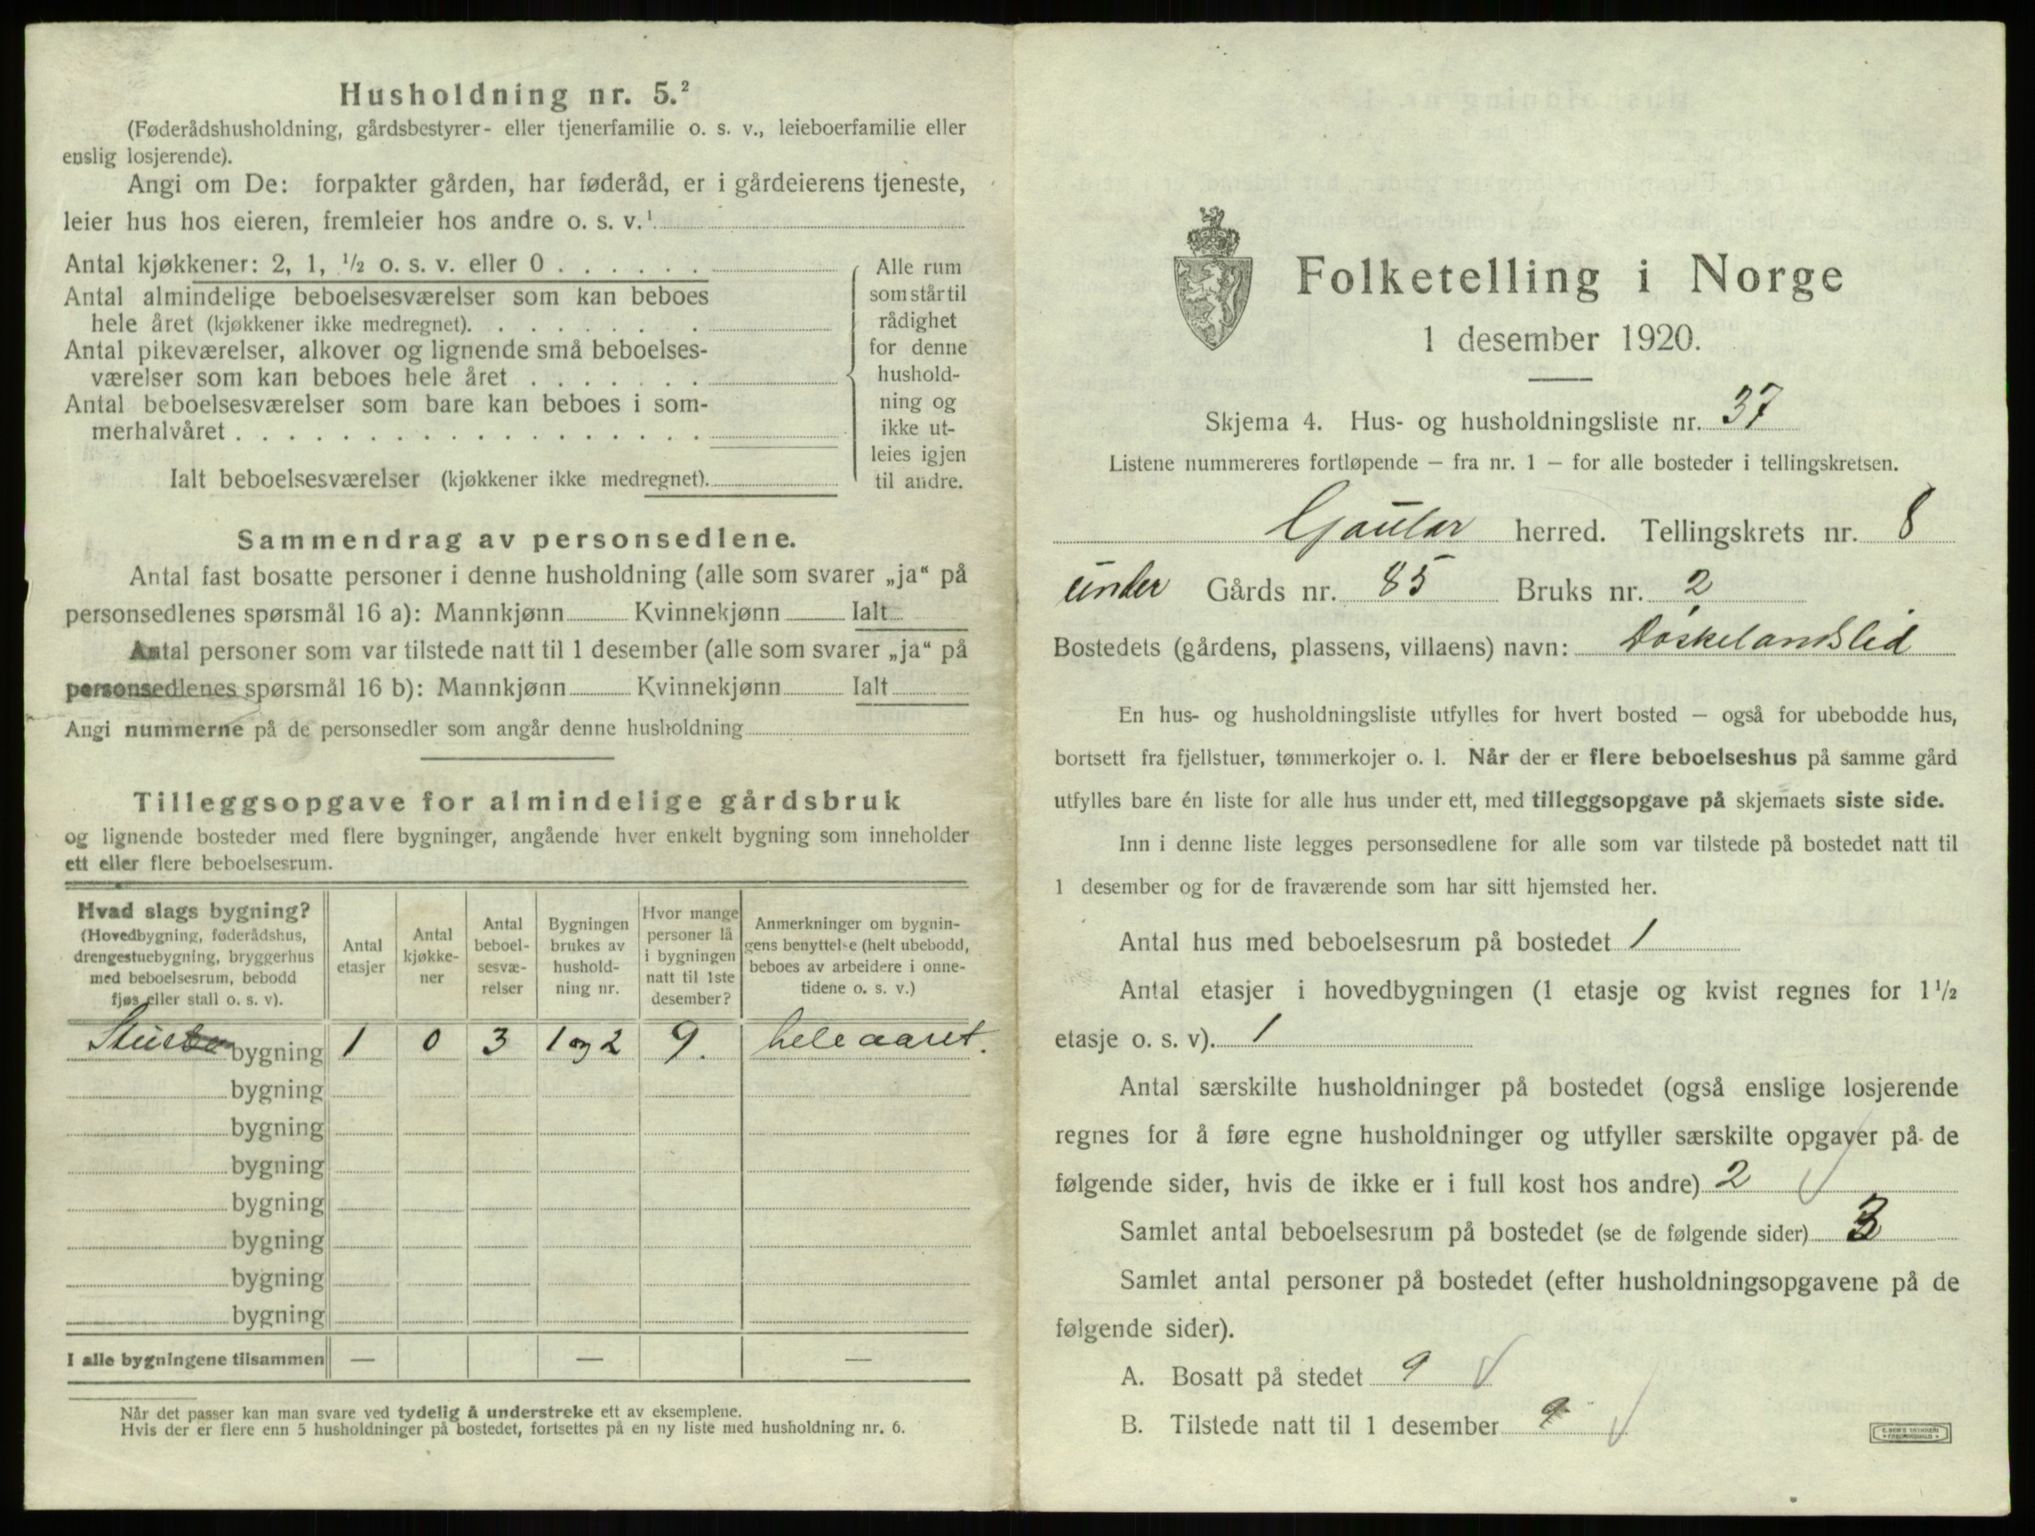 Husholdning nr. 5.²
(Føderådshusholdning, gårdsbestyrer- eller tjenerfamilie o. s. v., leieboerfamilie eller
enslig losjerende).
Angi om De: forpakter gården, har føderåd, er i gårdeierens tjeneste,
leier hus hos eieren, fremleier hos andre o. s. v.¹
Antal kjøkkener: 2, 1, ½ o. s. v. eller 0
Antal almindelige beboelsesværelser som kan beboes
hele året (kjøkkener ikke medregnet).
Antal pikeværelser, alkover og lignende små beboelses-
værelser som kan beboes hele året
Antal beboelsesværelser som bare kan beboes i som-
merhalvåret
Ialt beboelsesværelser (kjøkkener ikke medregnet).
Alle rum
som står til
rådighet
for denne
hushold-
ning og
ikke ut-
leies igjen
til andre.
Sammendrag av personsedlene.
Antal fast bosatte personer i denne husholdning (alle som svarer „ja" på
personsedlenes spørsmål 16 a): Mannkjønn Kvinnekjønn Ialt
Antal personer som var tilstede natt til 1 desember (alle som svarer „ja" på
personsedlenes spørsmål 16 b): Mannkjønn Kvinnekjønn Ialt
Angi nummerne på de personsedler som angår denne husholdning
Tilleggsopgave for almindelige gårdsbruk
og lignende bosteder med flere bygninger, angående hver enkelt bygning som inneholder
ett eller flere beboelsesrum.
Hvad slags bygning?
(Hovedbygning, føderådshus,
drengestuebygning, bryggerhus
med beboelsesrum, bebodd
fjøs eller stall o. s. v).
Antal
etasjer
Antal
kjøkke-
ner
Antal
beboel-
sesvæ-
relser
Bygningen
brukes av
hushold-
ning nr.
Hvor mange
personer lå
i bygningen
natt til 1ste
desember?
Anmerkninger om bygnin-
gens benyttelse (helt ubebodd,
beboes av arbeidere i onne-
tidene o. s. v.)
bygning 1 0 3 1 og 2 9. hele aaret.
bygning
bygning
bygning
bygning
bygning
bygning
bygning
I alle bygningene tilsammen — — —
Når det passer kan man svare ved tydelig å understreke ett av eksemplene.
Hvis der er flere enn 5 husholdninger på bostedet, fortsettes på en ny liste med husholdning nr. 6.
Folketelling i Norge
1 desember 1920.
Skjema 4. Hus- og husholdningsliste nr. 37
Listene nummereres fortløpende — fra nr. 1 — for alle bosteder i tellingskretsen.
Gaular herred. Tellingskrets nr. 8
under Gårds nr. 85 Bruks nr. 2
Bostedets (gårdens, plassens, villaens) navn: Døskelandslid
En hus- og husholdningsliste utfylles for hvert bosted — også for ubebodde hus,
bortsett fra fjellstuer, tømmerkojer o. l. Når der er flere beboelseshus på samme gård
utfylles bare én liste for alle hus under ett, med tilleggsopgave på skjemaets siste side.
Inn i denne liste legges personsedlene for alle som var tilstede på bostedet natt til
1 desember og for de fraværende som har sitt hjemsted her.
Antal hus med beboelsesrum på bostedet 1
Antal etasjer i hovedbygningen (1 etasje og kvist regnes for 1½
etasje o. s. v). 1
Antal særskilte husholdninger på bostedet (også enslige losjerende
regnes for å føre egne husholdninger og utfyller særskilte opgaver på de
følgende sider, hvis de ikke er i full kost hos andre) 2
Samlet antal beboelsesrum på bostedet (se de følgende sider) 3
Samlet antal personer på bostedet (efter husholdningsopgavene på de
følgende sider).
A. Bosatt på stedet 9
B. Tilstede natt til 1 desember 9